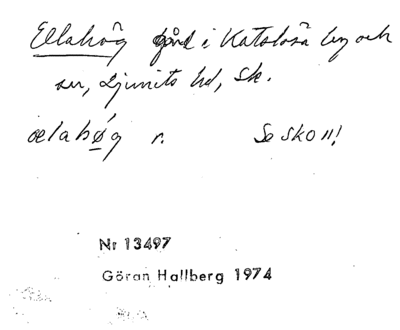 Ellahög gård i Katslösa by och
sn, Ljunits hd, Sk.
ælahǿg r. Se skon!
Nr 13497
Göran Hallberg 1974